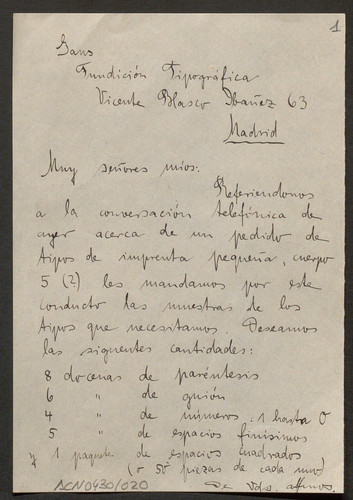 1
Gans
Fundición Tipográfica
Vicente Blasco Ibañez 63
Madrid
Muy señores mios:
Referiendonos
a la conversación telefónica de
ayer acerca de un pedido de
tipos de imprenta pequeña, cuerpo
5 (?) les mandamos por este
conducto las muestras de los
tipos que necesitamos. Deseamos
las siguentes cantidades:
8 docenas de paréntesis
6 " de guión
4 " de números: 1 hasta 0
5 " de espacios finísimos
y 1 paquete de espacios cuadrados
(o 50 piezas de cada uno)
De Vds. affmos.
ACN0430/020